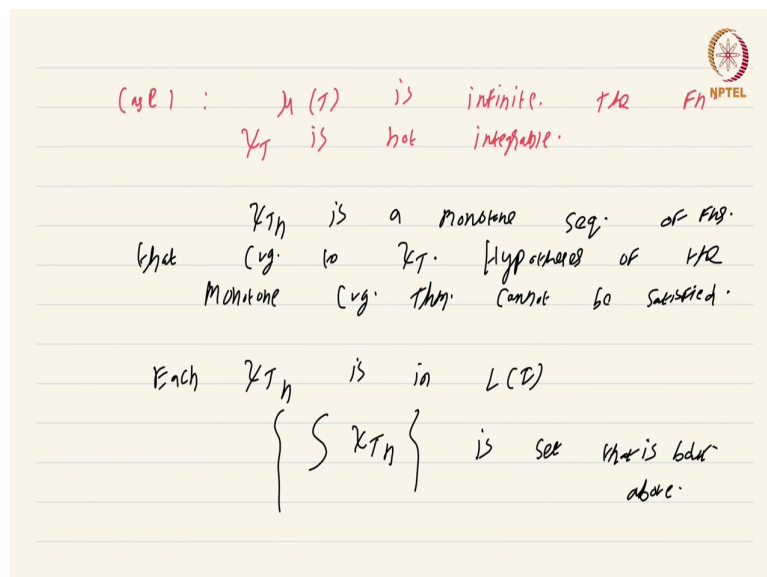 Case 1 : μ(T) is infinite. The Fn
NPTEL
χ_T is not integrable.
χ_{T_n} is a monotone seq. of Fns.
that Cvg. to χ_T. Hypotheses of the
Monotone Cvg. Thm. cannot be satisfied.
Each χ_{T_n} is in L(I)
{ ∫ χ_{T_n} } is set that is bdd
above.